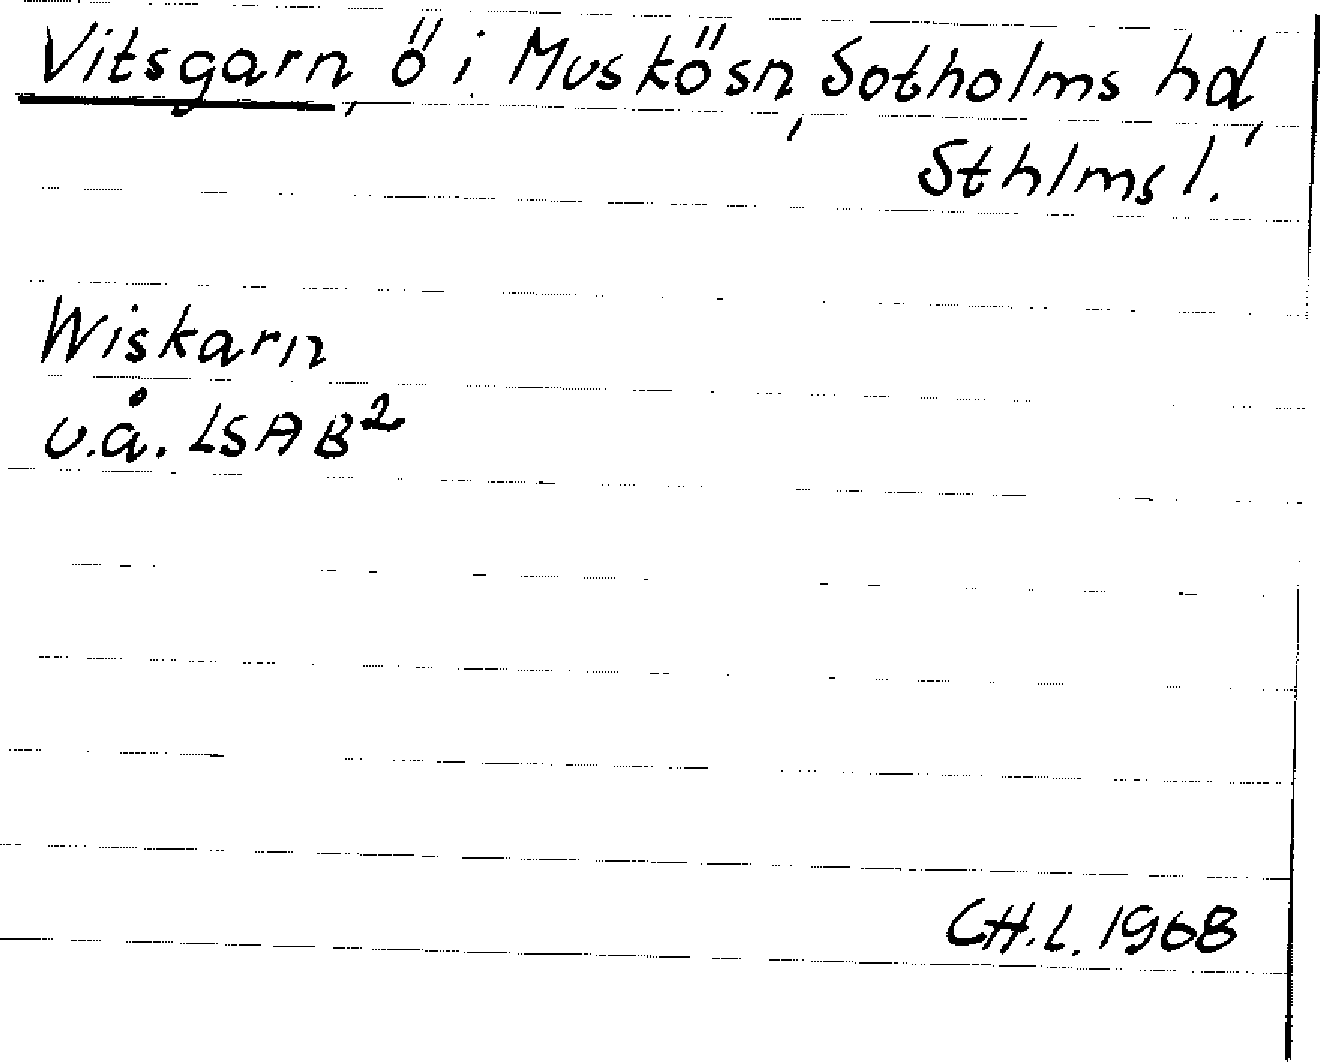 Vitsgarn, ö i Muskö sn, Sotholms hd,
Sthlms l.
Wiskarn
u.å. LSA B²
CH.L. 1968